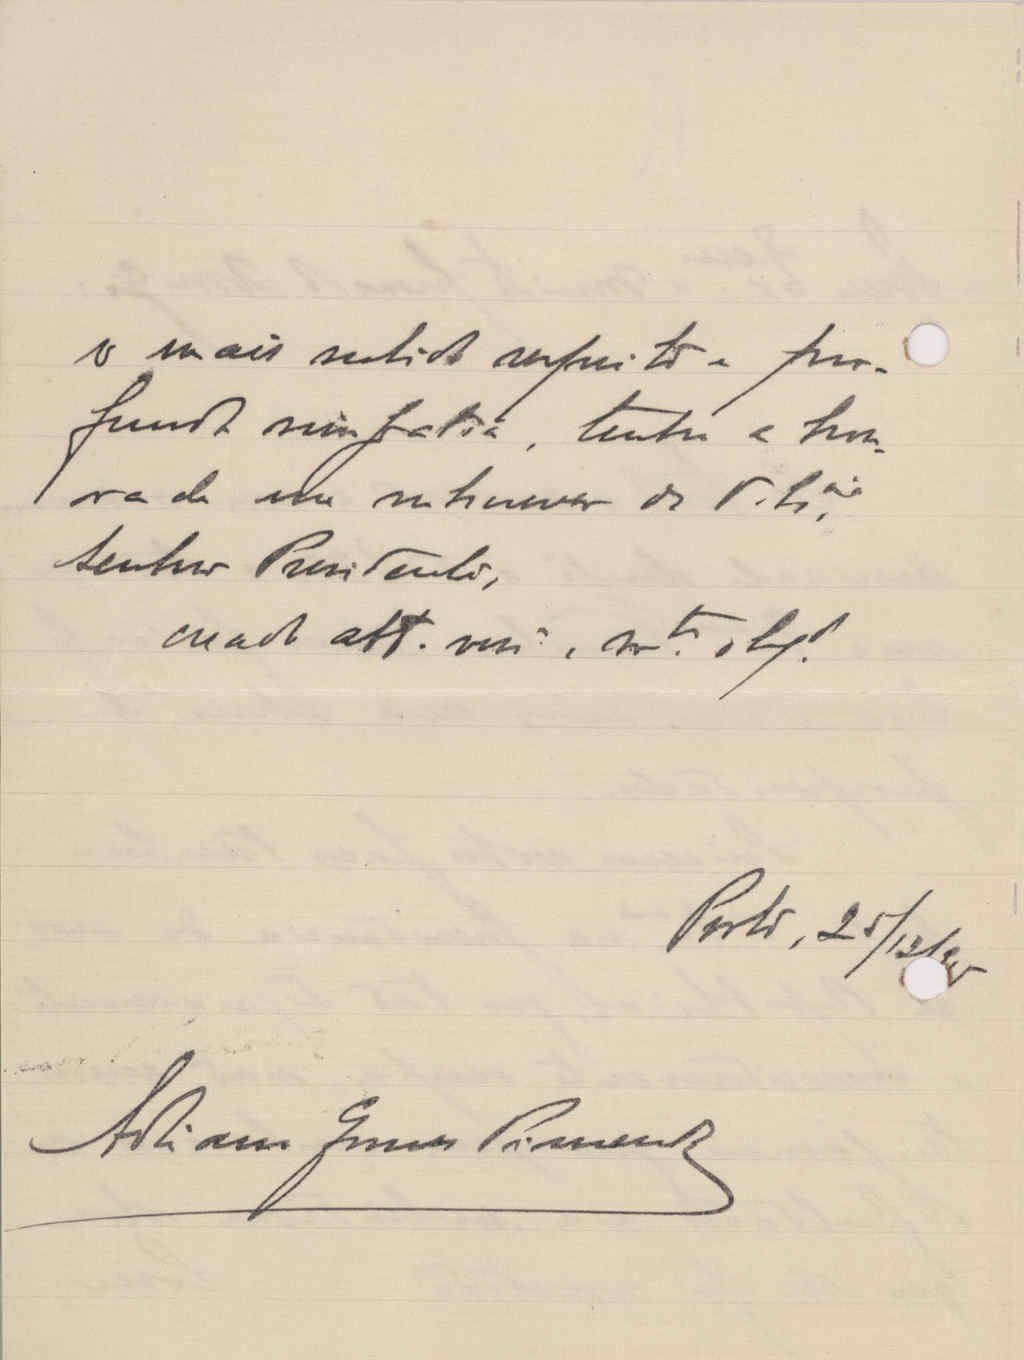 o mais subido respeito e pro-
funda simpatia, tenho a hon-
ra de me subscrever de V. Ex.cia,
Senhor Presidente,
creado att.º ven.or e m.to obg.do
Porto, 25/12/
Adriano Gomes Pimenta